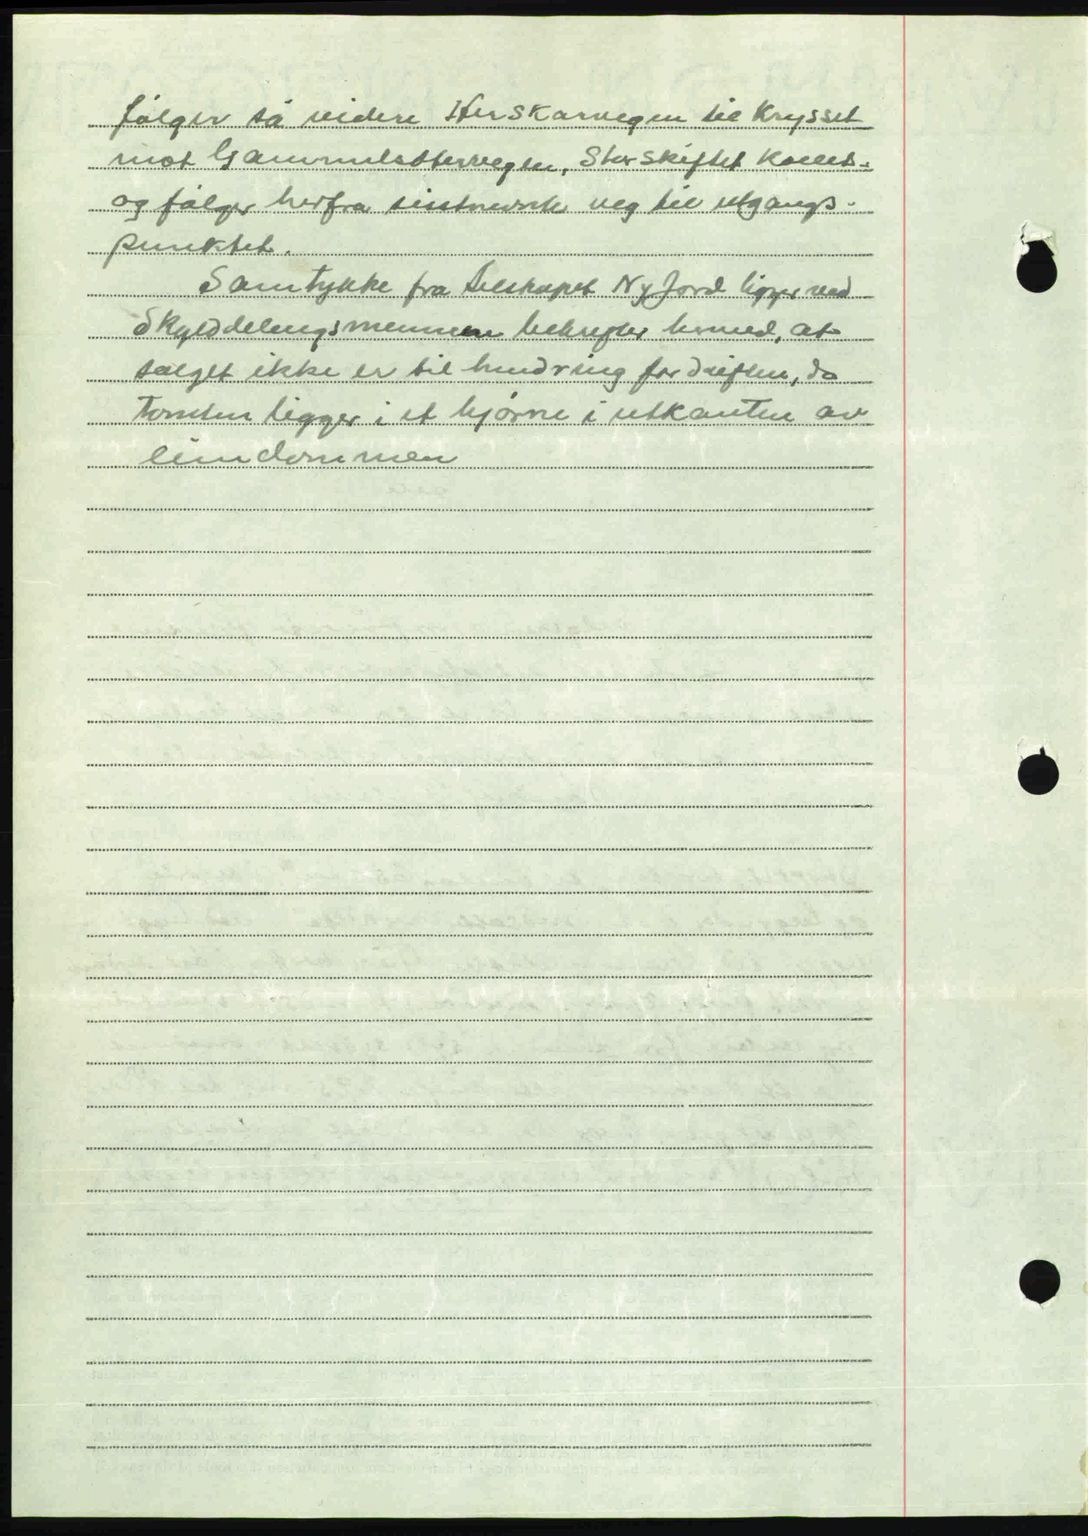 følger så videre Herskarvegen til Krysset
mot Gammelsetervegen, Storskiftet
og følger herfra veg til utgangs-
punktet.
Samtykke fra selskapet Ny Jord ligger ved
Skylddelingsmennene bekrefter herved, at
salget ikke er til hindring for driften, da
Tomten ligger i et hjørne i utkanten av
eiendommen